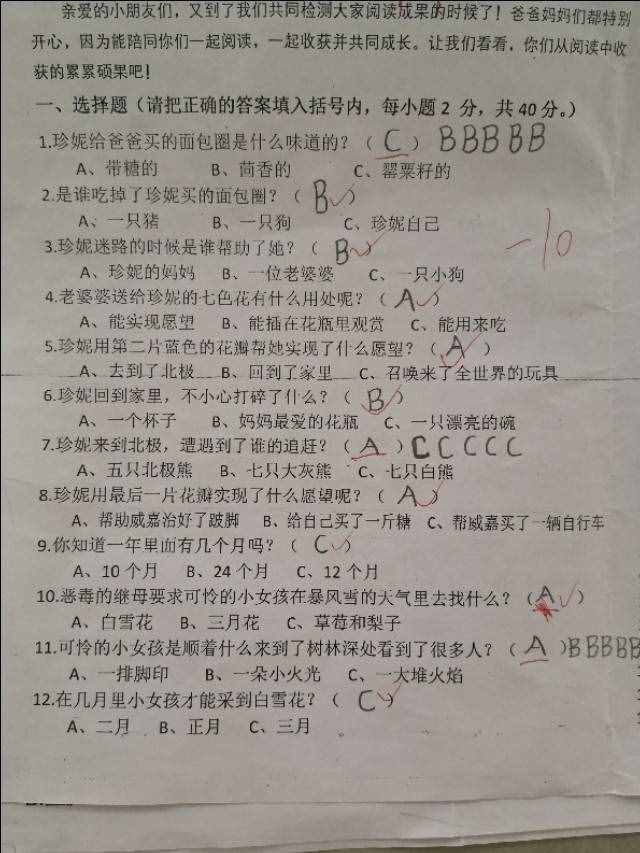 亲爱的小朋友们，又到了我们共同检测大家阅读成果的时候了！爸爸妈妈们都特别
开心，因为能陪同你们一起阅读，一起收获并共同成长。让我们看看，你们从阅读中收
获的累累硕果吧！
一、选择题（请把正确的答案填入括号内，每小题2 分，共40分。）
1.珍妮给爸爸买的面包圈是什么味道的？（ C ）BBBBB
A、带糖的 B、茴香的 C、罂粟籽的
2.是谁吃掉了珍妮买的面包圈？（ B ）
A、一只猪 B、一只狗 C、珍妮自己
3.珍妮迷路的时候是谁帮助了她？（ B ）
-10
A、珍妮的妈妈 B、一位老婆婆 C、一只小狗
4.老婆婆送给珍妮的七色花有什么用处呢？（ A ）
A、能实现愿望 B、能插在花瓶里观赏 C、能用来吃
5.珍妮用第二片蓝色的花瓣帮她实现了什么愿望？（ A ）
A、去到了北极 B、回到了家里 C、召唤来了全世界的玩具
6.珍妮回到家里，不小心打碎了什么？（ B ）
A、一个杯子 B、妈妈最爱的花瓶 C、一只漂亮的碗
7.珍妮来到北极，遭遇到了谁的追赶？（ A ）CCCCC
A、五只北极熊 B、七只大灰熊 C、七只白熊
8.珍妮用最后一片花瓣实现了什么愿望呢？（ A ）
A、帮助威嘉治好了跛脚 B、给自己买了一斤糖 C、帮威嘉买了一辆自行车
9.你知道一年里面有几个月吗？（ C ）
A、10个月 B、24个月 C、12个月
10.恶毒的继母要求可怜的小女孩在暴风雪的天气里去找什么？（ A ）
A、白雪花 B、三月花 C、草莓和梨子
11.可怜的小女孩是顺着什么来到了树林深处看到了很多人？（ A ）BBBBB
A、一排脚印 B、一朵小火光 C、一大堆火焰
12.在几月里小女孩才能采到白雪花？（ C ）
A、二月 B、正月 C、三月